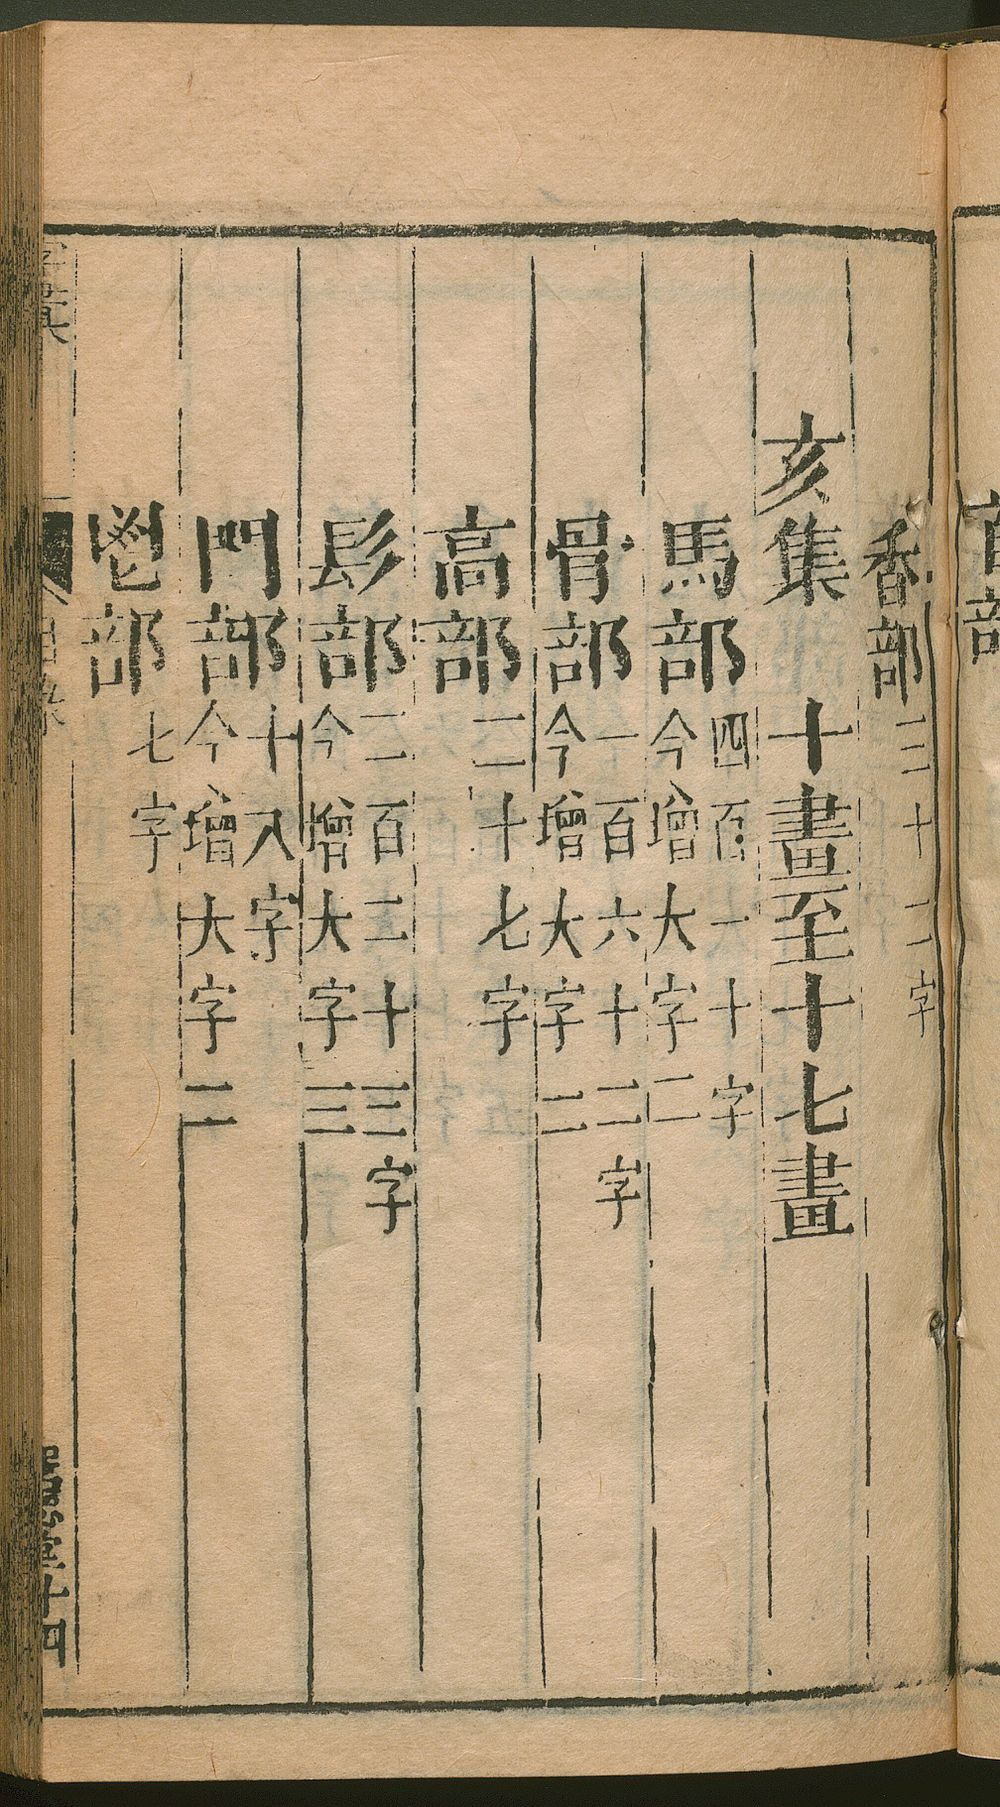 香部 三十二字
亥集 十畫至十七畫
馬部 四百一十字
今增大字二
骨部 一百六十二字
今增大字二
高部 二十七字
髟部 二百二十三字
今增大字三
鬥部 十八字
今增大字二
鬯部 七字
字彙 目錄 十四